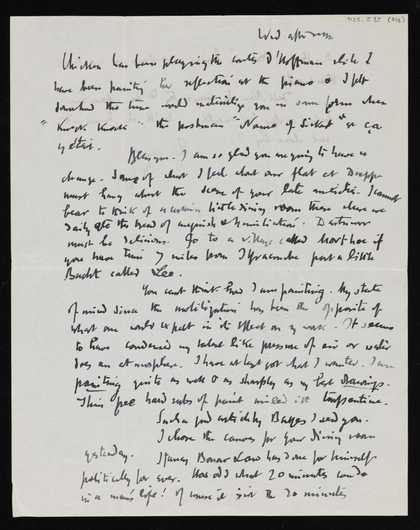 Wed afternoon
Chicken has been playing the Contes d'Hoffman while I
have been painting her reflection at the piano & I felt
the time would you in some form when
"Knock Knock" the postman "Name of Sickert" "
y était.
I am so glad you are going to have a
change. Some of what I feel about our flat at Dieppe
must hang about the scene of your late . I cannot
bear to think of a certain little dining room there where we
daily ate the bread of anguish & humiliation. Dartmoor
must be delicious. Go to a village called Morthoe if
you have time 7 miles from Ilfracombe past a little
called Lee.
You can't think how I am painting. My state
of mind since the mobilization has been the opposite of
what one would expect in its effect on my work. It seems
to have condensed my talent like pressure of air or water
does an atmosphere. I have at last got what I wanted. I am
painting quite as well & as sharply as my best drawings.
Thin free hard rubs of paint mixed with turpentine.
Such a good article by I send you.
I chose the canvas for your dining room
yesterday. I fancy Bonar Law has done for himself
politically for ever. How odd what 20 minutes can do
in a man's life! Of course it isn't the 20 minutes